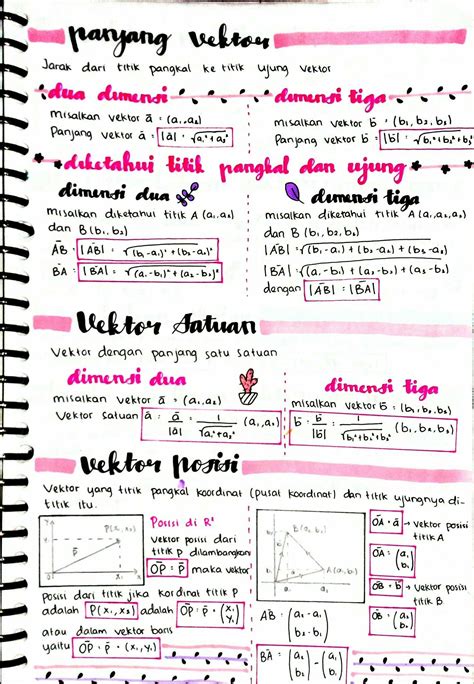 panjang vektor
Jarak dari titik pangkal ke titik ujung vektor
dua dimensi
misalkan vektor ā = (a₁,a₂)
Panjang vektor ā = |ā| = √a₁²+a₂²
dimensi tiga
misalkan vektor b̄ = (b₁, b₂, b₃)
Panjang vektor b̄ = |b̄| = √b₁²+b₂²+b₃²
diketahui titik pangkal dan ujung
dimensi dua
misalkan diketahui titik A (a₁,a₂)
dan B (b₁, b₂)
A̅B̅ = |A̅B̅| = √(b₁-a₁)² + (b₂-a₂)²
B̅A̅ = |B̅A̅| = √(a₁-b₁)² + (a₂-b₂)²
dimensi tiga
misalkan diketahui titik A (a₁,a₂,a₃)
dan B (b₁, b₂, b₃)
|A̅B̅| = √(b₁-a₁) + (b₂-a₂) + (b₃-a₃)
|B̅A̅| = √(a₁-b₁) + (a₂-b₂) + (a₃-b₃)
dengan |A̅B̅| = |B̅A̅|
Vektor Satuan
Vektor dengan panjang satu satuan
dimensi dua
misalkan vektor ā = (a₁,a₂)
Vektor satuan ā = ā/|ā| = 1/√a₁²+a₂² (a₁,a₂)
dimensi tiga
misalkan vektor b̄ = (b₁, b₂, b₃)
b̄ = b̄/|b̄| = 1/√b₁²+b₂²+b₃² (b₁, b₂, b₃)
Vektor posisi
Vektor yang titik pangkal koordinat (pusat koordinat) dan titik ujungnya di-
titik itu.
Y
P(x₁, x₂)
p̄
O
X₁
X
Posisi di R²
vektor posisi dari
titik P dilambangkan
O̅P̅ = p̄ maka vektor
Posisi dari titik jika kordinat titik P
adalah P(x₁, x₂) adalah O̅P̅ = p̄ = (x₁ y₁)
atau dalam vektor baris
yaitu O̅P̅ = p̄ = (x₁, y₁)
B(b₁, b₂)
A(a₁, b₁)
A̅B̅ = (a₂-a₁ b₂-b₁)
B̅A̅ = (a₂ b₂) - (a₁ b₁)
O̅A̅ = ā → vektor posisi
titik A
O̅A̅ = (a₁ b₁)
O̅B̅ = b̄ → Vektor posisi
titik B
O̅B̅ = (a₂ b₂)